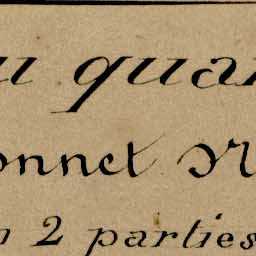 u quar
onnet N
n 2 parties